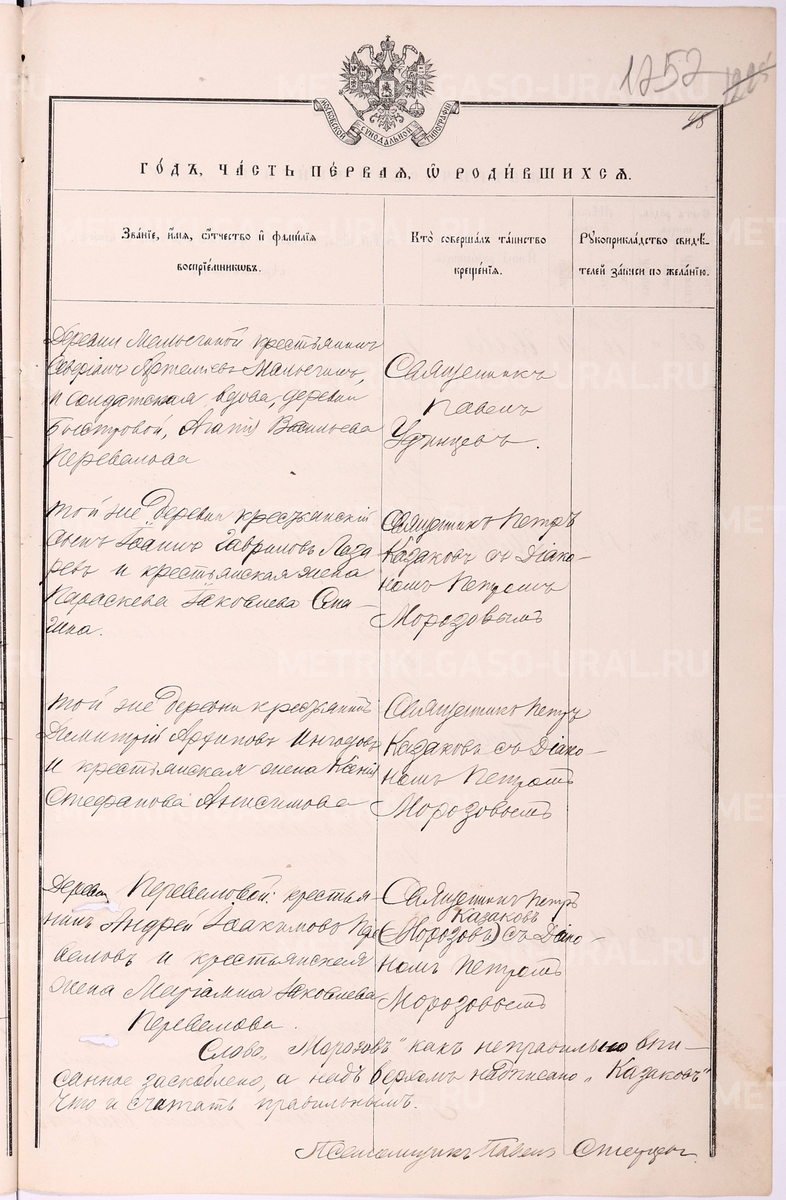 1252
МОСКОВСКОЙ СѴНОДАЛЬНОЙ ТИПОГРАФІИ
ГО́ДЪ, ЧА́СТЬ ПЕ́РВАЯ, Ѡ҆ РОДИ́ВШИХСЯ.
Зва́нїе, и҆́мя, ѻ҆́тчество и҆ фами́лїя
воспрїе́мникѡвъ.
Кто̀ соверша́лъ та́инство
креще́нїя.
Рꙋкоприкла́дство свидѣ́-
телей за́писи по жела́нїю.
Деревни Мальгиной крестьянинъ
Северіанъ Артемьевъ Мальгинъ,
и солдатская вдова, деревни
Быстровой, Агапія Васильева
Перевалова
Священникъ
Павелъ
Удинцевъ.
той же деревни крестьянскій
сынъ Іоаннъ Гавриловъ Лаза
ревъ и крестьянская жена
Параскева Іаковлева
Священникъ Петръ
Казаковъ съ Діако-
номъ Петромъ
Морозовымъ
той же деревни крестьянинъ
Димитрій Архиповъ
и крестьянская жена Ксенія
Стефанова Анисимова
Священникъ Петръ
Казаковъ съ Діако-
номъ Петромъ
Морозовымъ
Деревни Переваловой: крестья
нинъ Андрей Іоакимовъ Пере
валовъ и крестьянская
жена Маріамна Іаковлева
Перевалова.
Священникъ Петръ
Казаковъ
(Морозовъ) съ Діако-
номъ Петромъ
Морозовымъ
Слово „Морозовъ" какъ неправильно впи-
санное заскоблено, а надъ верхомъ надписано „Казаковъ"
что и считать правильнымъ.
Псаломщикъ Павелъ
METRIKI.GASO-URAL.RU
METRIKI.GASO-URAL.RU
METRIKI.GASO-URAL.RU
METRIKI.GASO-URAL.RU
METRIKI.GASO-URAL.RU